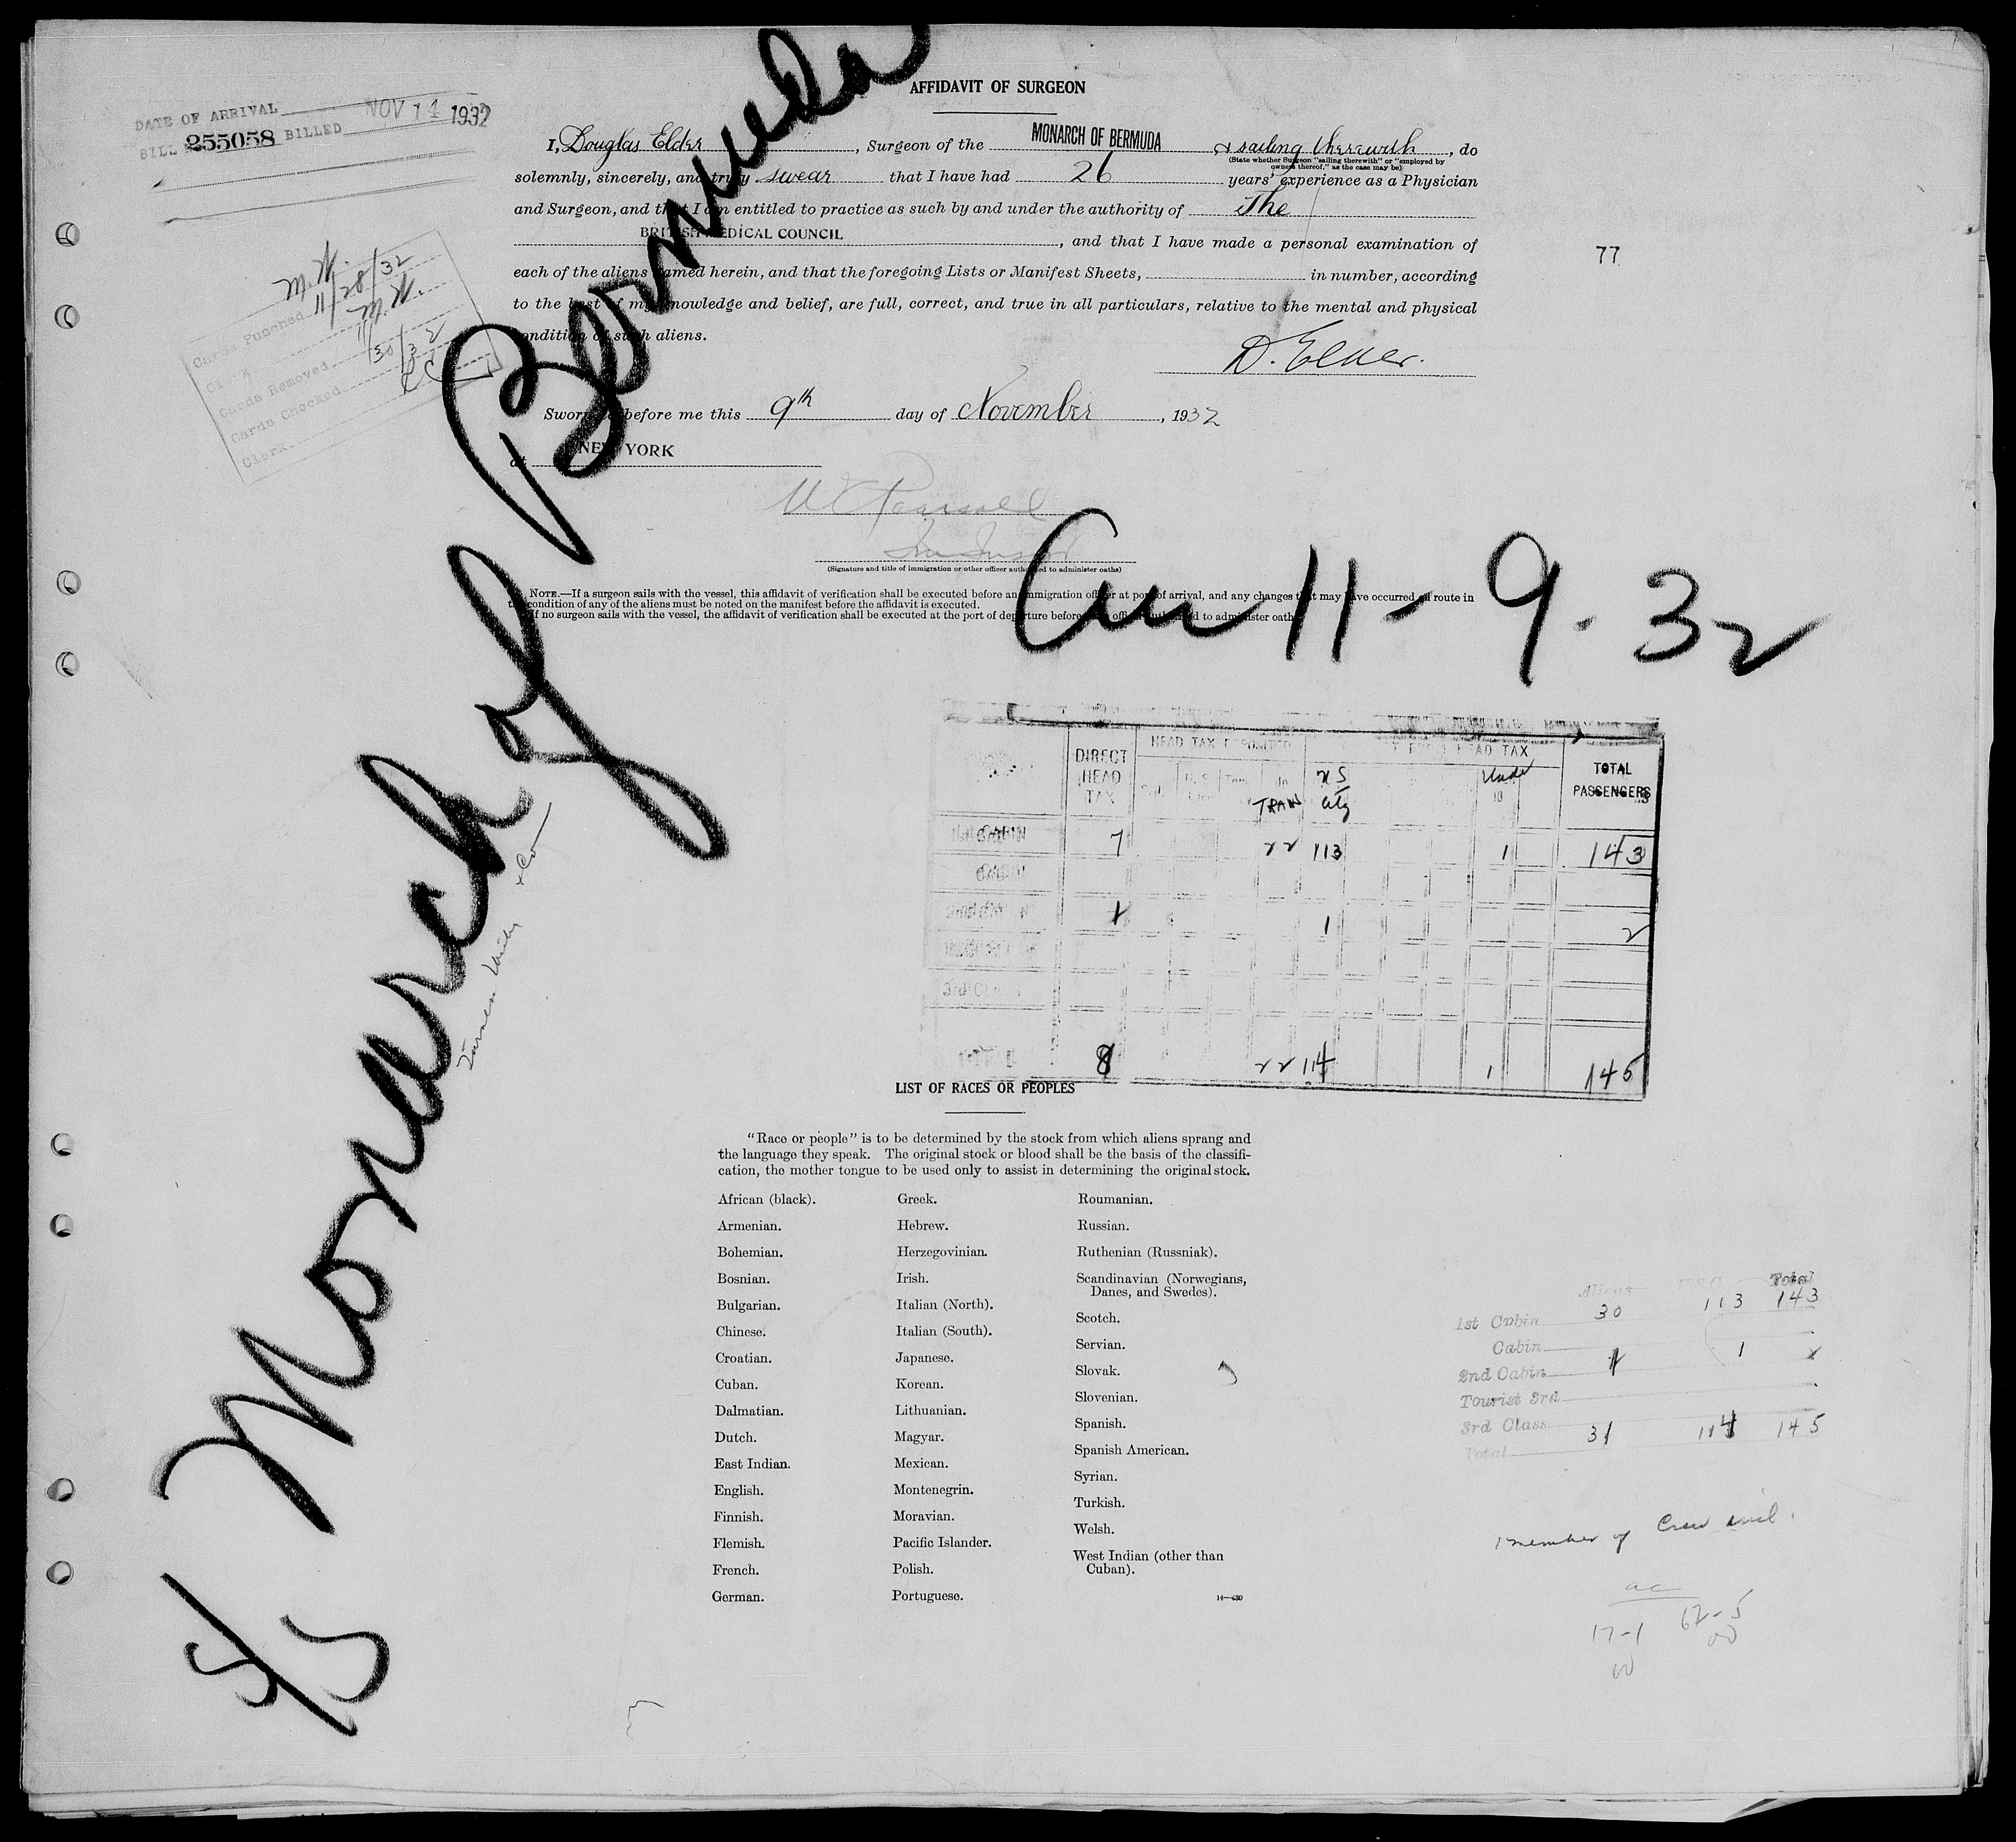 AFFIDAVIT OF SURGEON
DATE OF ARRIVAL NOV 14 1932
BILL 255058 BILLED
I, Douglas Elder, Surgeon of the MONARCH OF BERMUDA & sailing therewith, do
(State whether Surgeon "sailing therewith" or "employed by
owners thereof," as the case may be)
solemnly, sincerely, and truly swear that I have had 26 years' experience as a Physician
and Surgeon, and that I am entitled to practice as such by and under the authority of The
BRITISH MEDICAL COUNCIL, and that I have made a personal examination of
77
each of the aliens named herein, and that the foregoing Lists or Manifest Sheets, in number, according
to the best of my knowledge and belief, are full, correct, and true in all particulars, relative to the mental and physical
condition of such aliens.
D. Elder.
M.K.
Cards Punched 11/28/32
Clerk M.K.
Cards Removed 11/30/32
Cards Checked
Clerk
Sworn to before me this 9th day of November, 1932
at NEW YORK
(Signature and title of immigration or other officer authorized to administer oaths)
NOTE.—If a surgeon sails with the vessel, this affidavit of verification shall be executed before an immigration officer at port of arrival, and any changes that may have occurred en route in
the condition of any of the aliens must be noted on the manifest before the affidavit is executed.
If no surgeon sails with the vessel, the affidavit of verification shall be executed at the port of departure before an officer authorized to administer oaths.
S/S Monarch of Bermuda
Arr 11-9-32
DIRECT HEAD TAX
HEAD TAX DEPOSITED
HEAD TAX
TOTAL PASSENGERS
In TRAN
US City
Under 16
1st CABIN 7 22 113 1 143
CABIN
2nd CABIN 1 1 2
3rd CLASS
TOTAL 8 22 114 1 145
LIST OF RACES OR PEOPLES
"Race or people" is to be determined by the stock from which aliens sprang and
the language they speak. The original stock or blood shall be the basis of the classifi-
cation, the mother tongue to be used only to assist in determining the original stock.
African (black).
Armenian.
Bohemian.
Bosnian.
Bulgarian.
Chinese.
Croatian.
Cuban.
Dalmatian.
Dutch.
East Indian.
English.
Finnish.
Flemish.
French.
German.
Greek.
Hebrew.
Herzegovinian.
Irish.
Italian (North).
Italian (South).
Japanese.
Korean.
Lithuanian.
Magyar.
Mexican.
Montenegrin.
Moravian.
Pacific Islander.
Polish.
Portuguese.
Roumanian.
Russian.
Ruthenian (Russniak).
Scandinavian (Norwegians,
Danes, and Swedes).
Scotch.
Servian.
Slovak.
Slovenian.
Spanish.
Spanish American.
Syrian.
Turkish.
Welsh.
West Indian (other than
Cuban).
Aliens U.S.C. Total
1st Cabin 30 113 143
Cabin
2nd Cabin 1 1
Tourist 3rd
3rd Class
Total 31 114 145
1 member of Crew
17-1
62-5